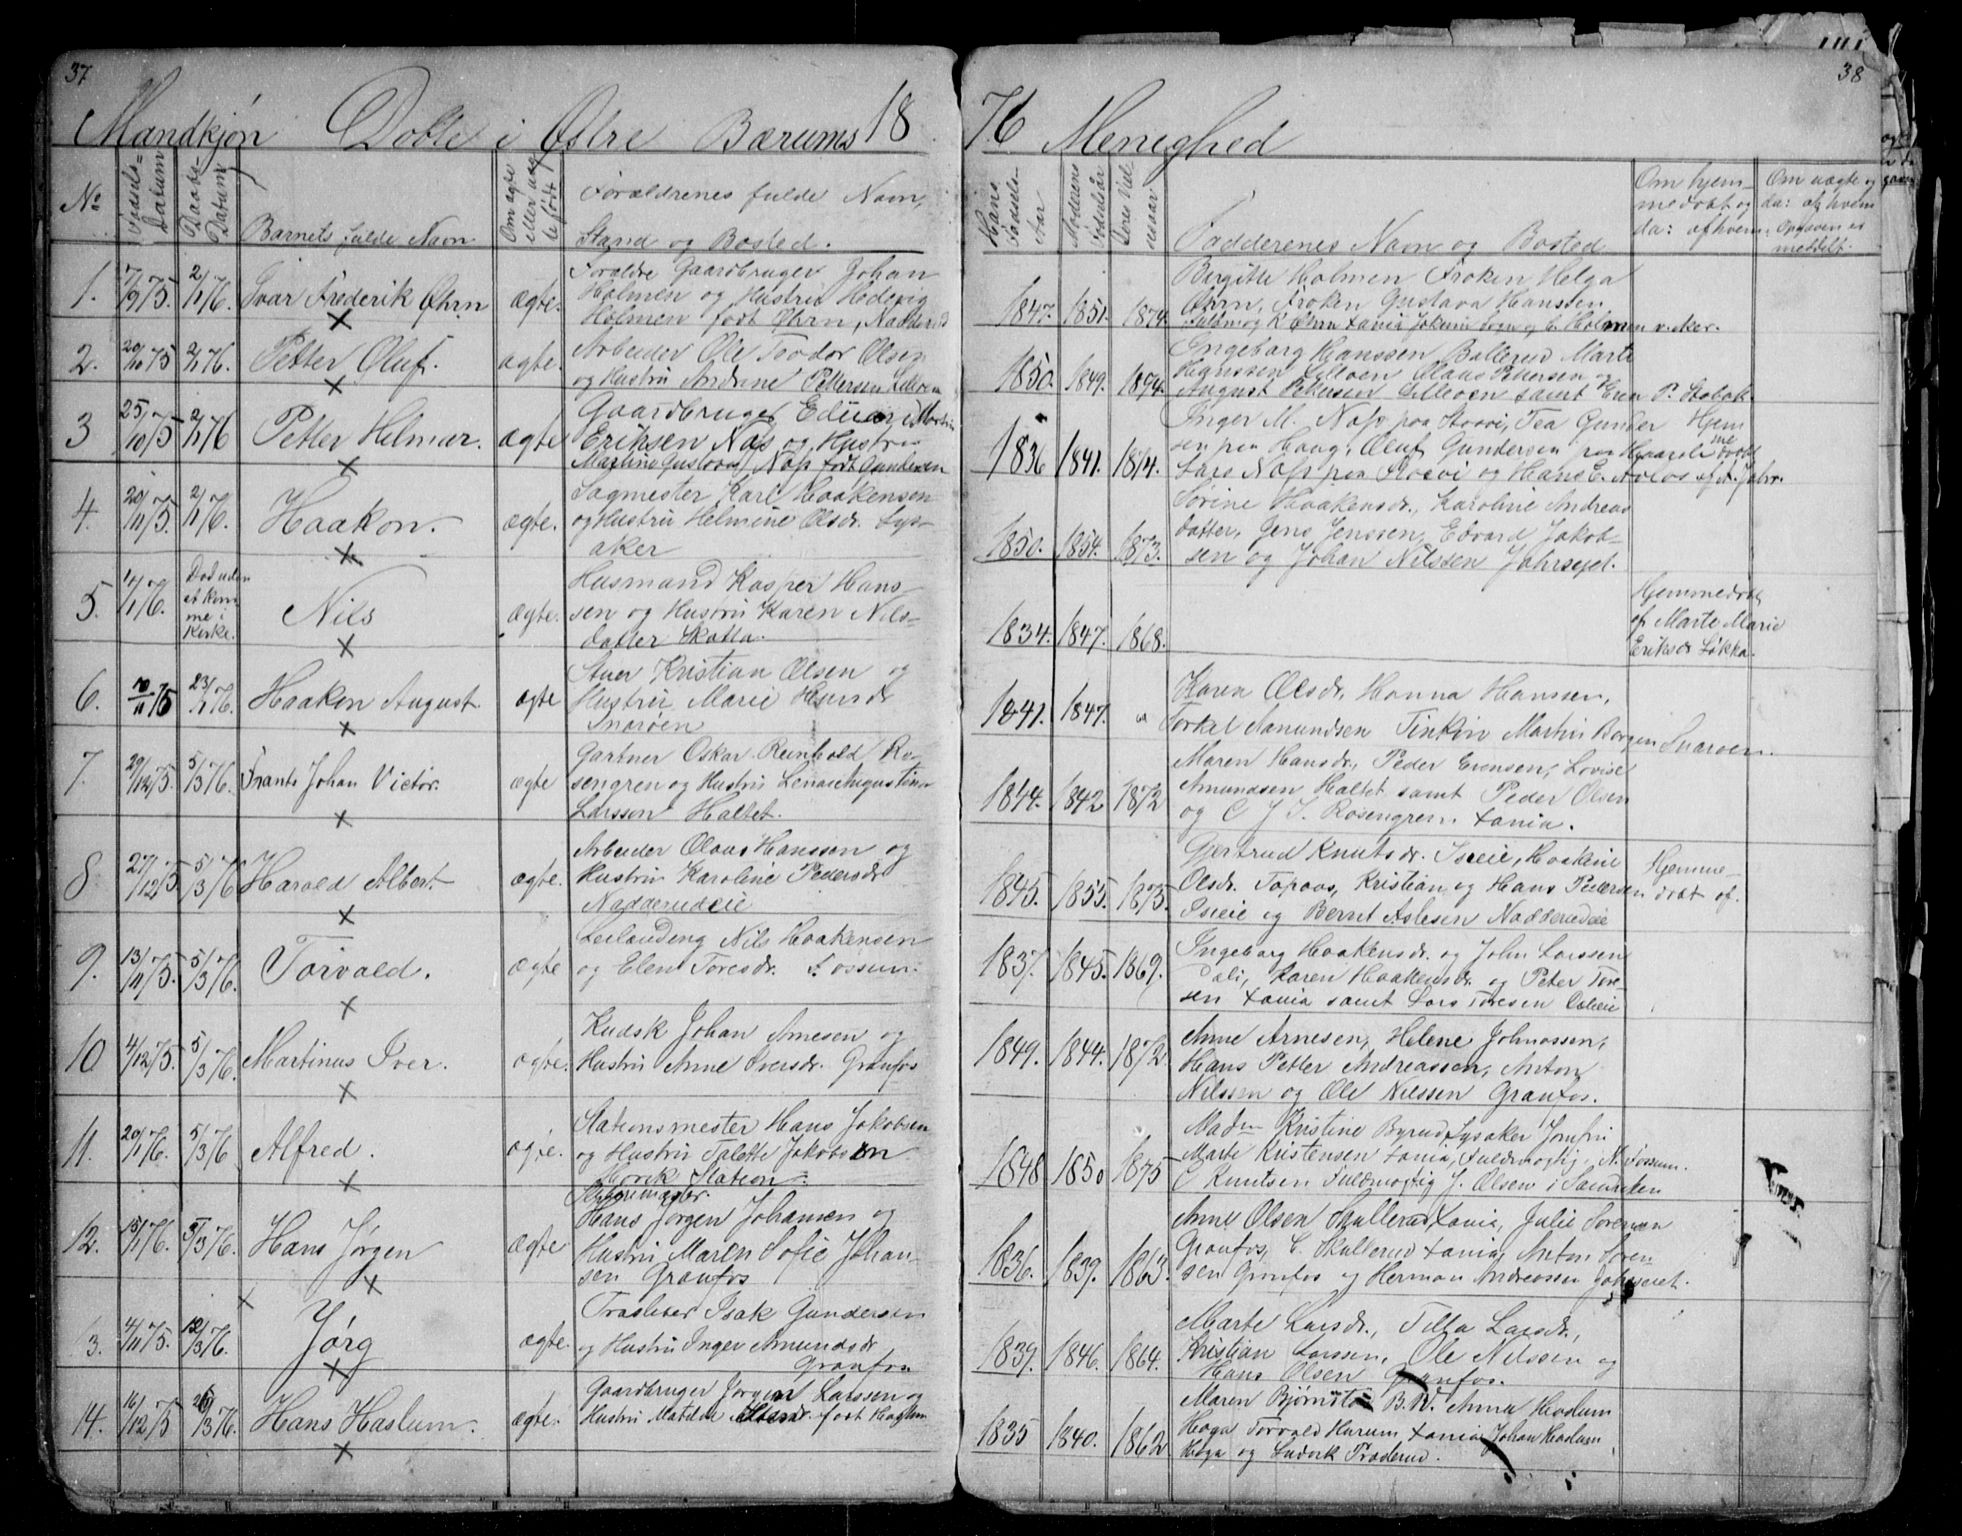 37
38
Mandkjøn Døbte i Østre Bærums 1876 Menighed
No
Fødsels-Datum
Daabs-Datum
Barnets fulde Navn
Om ægte eller uægte født
Forældrenes fulde Navn,
Stand og Bosted.
Hans Fødsels-Aar
Moderens Fødselsår
Deres Vielsesaar
Fadderenes Navn og Bosted
Om hjem-
medøbt og
da: af hvem.
Om uægte og
da: af hvem
Opgaven er
meddelt.
1. 7/9 75. 2/1 76. Ivar Frederik Øhrn ægte.
Forældre Gaardbruger Johan
Holmen og Hustru Hedevig
Holmen født Øhrn, Nadderud
1847. 1851. 1874.
Birgitte Holmen Frøken Helga
Øhrn, Frøken Gustava Hanssen
2. 20/10 75 2/1 76. Petter Oluf. ægte.
Arbeider Ole Teodor Olsen
og Hustru Andrine Pettersen Lilleøen
1850. 1849. 1874.
Ingeborg Hanssen Ballerud Marte
Hanssen Lilleøen Olaus Pettersen og
August Pettersen Lilleøen samt Even P. Stabæk.
3 25/10 75 2/1 76 Petter Hilmar. ægte
Gaardbruger Edvard Martin
Eriksen Næss og Hustru
Martine Gustava Næss født Gundersen
1836 1841. 1874.
Inger M. Næss paa Stovi, Tea Gunder
sen paa Haug, Oluf Gundersen paa
Lars Næss paa Stovi og Hans E.
Hjem
me
døbt
af A. Jahr.
4. 20/11 75. 2/1 76. Haakon. ægte.
Sagmester Karl Haakensen
og Hustru Helmine Olsdr. Lys-
aker
1850. 1854. 1873.
Sørine Haakensdr., Karoline Andreas
datter, Jens Jenssen, Edvard Jakob-
sen og Johan Nilssen Jahrsejet.
5. 14/1 76. Død uden
at kom
me i
Kirke.
Nils ægte.
Husmand Kasper Hans
sen og Hustru Karen Nils-
datter Skotta.
1834. 1847. 1868.
Hjemmedøbt
af Marte Marie
Eriksdr Løkka.
6. 10/11 75 23/1 76. Haakon August ægte
Stuer Kristian Olsen og
Hustru Marie Hansdr
Snarøen
1841. 1847. "
Karen Olsdr., Hanna Hanssen,
Torkel Aamundsen Finkin Martin Borgen Snarøen.
7. 29/12 75. 5/3 76. Frants Johan Victor. ægte
Gartner Oskar Reinhold Ro-
sengren og Hustru Lena Augustine
Larsson Haltet.
1844. 1842 1872
Maren Hansdr., Peder Evensen, Lovise
Amundsen Haltet samt Peder Olsen
og C J I. Rosengren. Xania.
8 27/12 75 5/3 76 Harald Albert ægte.
Arbeider Olaus Hanssen og
Hustru Karoline Pedersdr
Nadderudeie
1845. 1855. 1875.
Gjertrud Knutsdr. Iseeie, Haakine
Olsdr. Topaas, Kristian og Hans Pedersen
Iseeie og Berret Aslesen Nadderudeie
Hjemme-
døbt af.
9. 13/11 75. 5/3 76. Torvald. ægte
Leilænding Nils Haakensen
og Elen Toresdr. Fossum.
1837. 1845. 1869.
Ingeborg Haakensdr. og John Larssen
Dali, Karen Haakensdr. og Peter Tore-
sen Xania samt Lars Toresen Dalieie
10 4/12 75. 5/3 76. Martinus Iver. ægte.
Kudsk Johan Arnesen og
Hustru Anne Iversdr. Granfos
1849. 1844. 1872
Anne Arnesen, Helene Johnassen,
Hans Petter Andreassen, Anton
Nilssen og Ole Nilssen Granfos.
11. 20/1 76. 5/3 76 Alfred. ægte.
Stationsmester Hans Jakobsen
og Hustru Talette Jakobsen
Høvik Station
1848 1850 1875
Madm Kristine Byrud Lysaker Jomfru
Marte Kristensen Xania, Fuldmægtig N. Fossum.
C Knutsen Fuldmægtig J. Olsen i Sandviken
12. 15/1 76. 5/3 76. Hans Jørgen ægte
Hans Jørgen Johansen og
Hustru Maren Sofie Johan-
sen Granfos
1836. 1839. 1863.
Anne Olsen Skullerud Xania, Julie Sørensen
Granfos, C. Skullerud Xania, Anton Søren-
sen Granfos og Herman Andreassen Jahrseiet.
13. 4/11 75. 12/3 76. Jørg ægte.
Træsliber Isak Gundersen
og Hustru Inger Amundsdr
Granfos
1839. 1846. 1864.
Marte Larsdr., Tilla Larsdr.,
Kristian Larssen, Ole Nilssen og
Hans Olsen Granfos.
14. 16/12 75 26/3 76. Hans Haslum. ægte.
Gaardbruger Jørgen Larssen og
Hustru Matilde født Haslum
1835 1840. 1862
Maren Bjørnstad B.W. Anna Haslum
Haga Torvald Harum Xania Johan Haslum
Haga og Ludvik Præderud.